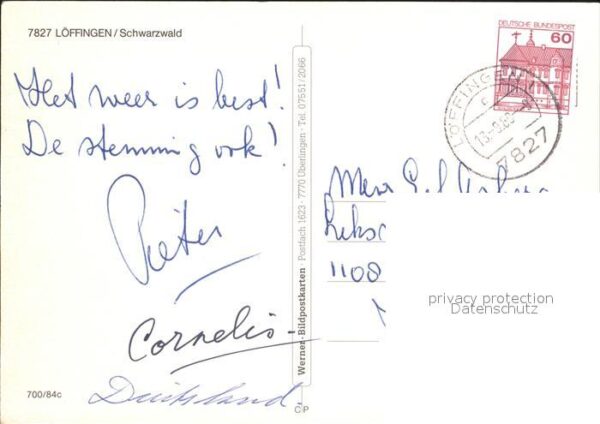 7827 LÖFFINGEN / Schwarzwald
Het weer is best!
De stemming ook!
Pieter
Cornelis
Duitsland
700/84c
Werner-Bildpostkarten · Postfach 1623 · 7770 Überlingen · Tel. 07551/2066
C P
DEUTSCHE BUNDESPOST
60
LÖFFINGEN
7827
Mevr
1108
privacy protection
Datenschutz